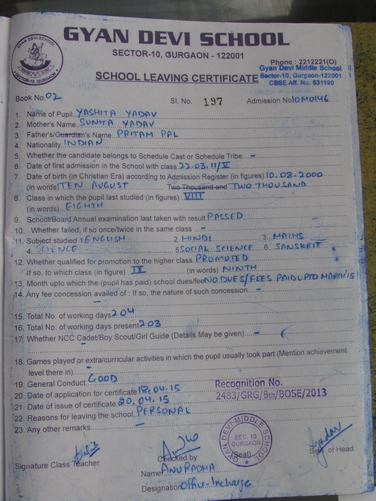 GYAN DEVI SCHOOL
SECTOR-10, GURGAON - 122001
Phone : 2212221(O)
Gyan Devi Middle School
Sector-10, Gurgaon-122001
CBSE Aff. No. 531190
SCHOOL LEAVING CERTIFICATE
Book No. 02 Sl. No. 197 Admission No 10M0146
1. Name of Pupil YASHITA YADAV
2. Mother's Name SUNITA YADAV
3. Father's/Guardian's Name PRITAM PAL
4. Nationality INDIAN
5. Whether the candidate belongs to Schedule Cast or Schedule Tribe -
6. Date of first admission in the School with class 22.03.11/V
7. Date of birth (in Christian Era) according to Admission Register (in figures) 10.08.2000
(in words) TEN AUGUST Two Thousand and TWO THOUSAND
8. Class in which the pupil last studied (in figures) VIII
(in words) EIGHTH
9. School/Board Annual examination last taken with result PASSED
10. Whether failed, if so once/twice in the same class -
11. Subject studied 1 ENGLISH 2. HINDI 3. MATHS
4. SCIENCE 5. SOCIAL SCIENCE 6. SANSKRIT
12. Whether qualified for promotion to the higher class PROMOTED
If so, to which class (in figure) IX (in words) NINTH
13. Month upto which the (pupil has paid) school dues/fee NO DUES/FEES PAID UPTO MARCH'15
14. Any fee concession availed of : If so, the nature of such concession -
15. Total No. of working days 204
16. Total No. of working days present 203
17. Whether NCC Cadet/Boy Scout/Girl Guide (Details May be given) -
18. Games played or extra/curricular activities in which the pupil usually took part (Mention achievement
level there in) -
19. General Conduct GOOD
20. Date of application for certificate 18.04.15
21. Date of issue of certificate 20.04.15
22. Reasons for leaving the school PERSONAL
23. Any other remarks -
Recognition No.
2483/GRG/8th/BOSE/2013
GYAN DEVI MIDDLE SCHOOL
SEC. 10
GURGAON
Signature Class Teacher
Checked by
(Seal)
Sign of Head
Name ANURADHA
Designation Office-Incharge